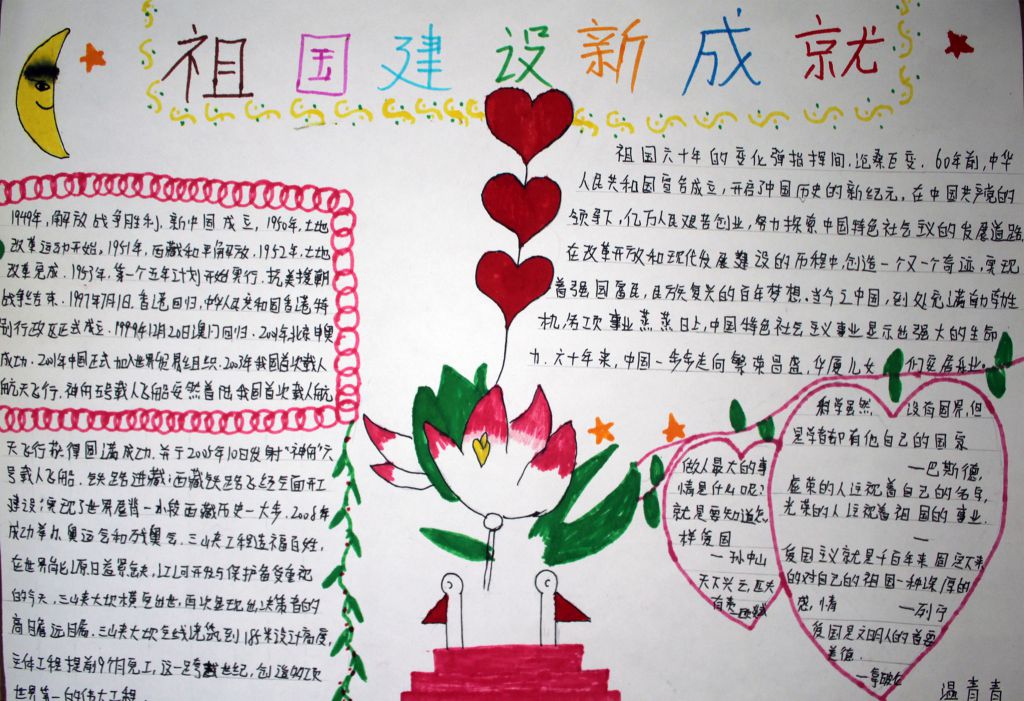 祖国建设新成就
祖国六十年的变化弹指挥间,沧桑巨变。60年前,中华
人民共和国宣告成立,开启了中国历史的新纪元。在中国共产党的
领导下,亿万人民艰苦创业,努力探索中国特色社会主义的发展道路
在改革开放和现代发展建设的历程中,创造一个又一个奇迹,实现
着强国富民,民族复兴的百年梦想。当今之中国,到处充满勃勃生
机,各项事业蒸蒸日上,中国特色社会主义事业显示出强大的生命
力。六十年来,中国一步步走向繁荣昌盛,华夏儿女 们安居乐业。
1949年,解放战争胜利,新中国成立,1950年,土地
改革运动开始,1951年,西藏和平解放,1952年,土地
改革完成.1953年,第一个五年计划开始实行.抗美援朝
战争结束.1997年7月1日.香港回归,中华人民共和国香港特
别行政区正式成立.1999年12月20日澳门回归.2001年北京申奥
成功.2001年中国正式加入世界贸易组织.2003年我国首次载人
航天飞行.神舟5号载人飞船安然着陆我国首次载人航
天飞行获得圆满成功.并于2005年10日发射"神舟"六
号载人飞船.铁路进藏:西藏铁路 全面开工
建设:实现了世界屋脊一小段西藏历史一大步.2008年
成功举办奥运会和残奥会.三峡工程造福百姓,
在世界能源日益紧缺,江河开发与保护备受重视
的今天,三峡大坝横空出世,再次显现出决策者的
高瞻远瞩.三峡大坝全线浇筑到185米设计高度,
主体工程提前9个月完工,这一跨越世纪,创造多项
世界第一的伟大工程.
做人最大的事
情是什么呢?
就是要知道怎
样爱国
—孙中山
天下兴亡,匹夫
有责—顾炎武
科学虽然 没有国界,但
是学者却有他自己的国家
—巴斯德,
虚荣的人注视着自己的名字,
光荣的人注视着祖国的事业.
—
爱国主义就是千百年来固定下来
的对自己的祖国一种深厚的
感情 —列宁
爱国是文明人的首要
美德.
—拿破仑
温青青